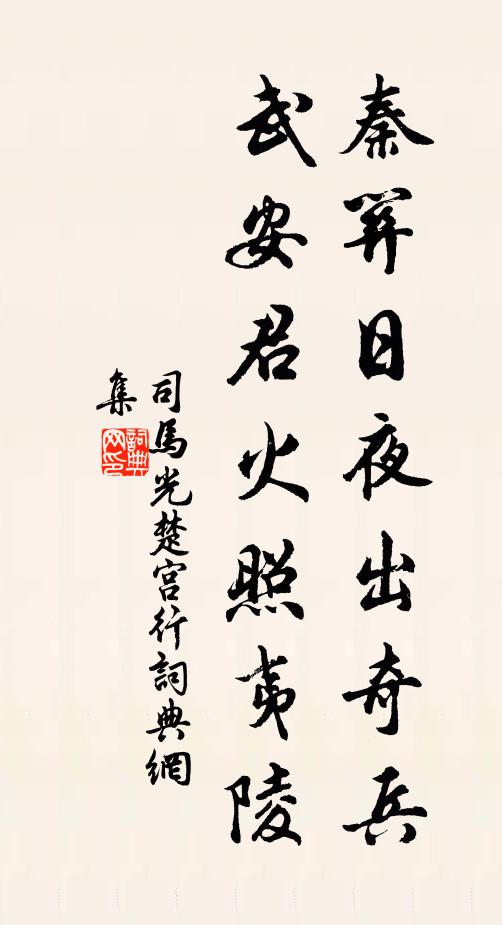 秦關日夜出奇兵
武安君火照夷陵
司馬光楚宮行詞典網
集
詞典网印